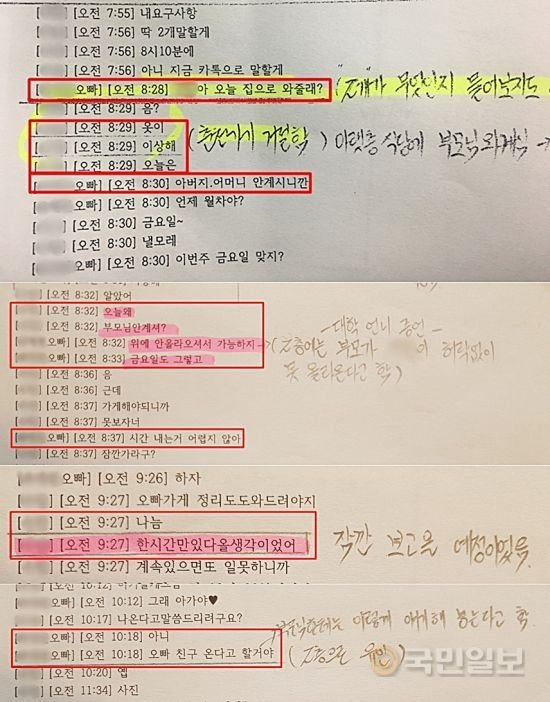 [오전 7:55] 내요구사항
[오전 7:56] 딱 2개말할게
[오전 7:56] 8시10분에
[오전 7:56] 아니 지금 카톡으로 말할게
오빠] [오전 8:28] 아 오늘 집으로 와줄래?
[오전 8:29] 음?
[오전 8:29] 옷이
[오전 8:29] 이상해
[오전 8:29] 오늘은
오빠] [오전 8:30] 아버지.어머니 안계시니깐
[오전 8:30] 언제 월차야?
[오전 8:30] 금요일~
[오전 8:30] 낼모레
오빠] [오전 8:30] 이번주 금요일 맞지?
[오전 8:32] 알았어
[오전 8:32] 오늘왜
[오전 8:32] 부모님안계셔?
오빠] [오전 8:32] 위에 안올라오셔서 가능하지
오빠] [오전 8:33] 금요일도 그렇고
[오전 8:36] 음
[오전 8:36] 근데
[오전 8:37] 가게해야되니까
[오전 8:37] 못보자너
오빠] [오전 8:37] 시간 내는거 어렵지 않아
[오전 8:37] 잠깐가라구?
대학 언니 증언
허락없이
못 올라온다고 함)
오빠] [오전 9:26] 하자
[오전 9:27] 오빠가게 정리도도와드려야지
[오전 9:27] 나늠
[오전 9:27] 한시간만있다올생각이었어
[오전 9:27] 계속있으면또 일못하니까
잠깐 보고올 예정이었음.
오빠] [오전 10:12] 그래 아가야♥
[오전 10:17] 나온다고말씀드리려구요?
오빠] [오전 10:18] 아니
오빠] [오전 10:18] 오빠 친구 온다고 할거야
[오전 10:20] 옙
[오전 11:34] 사진
국민일보